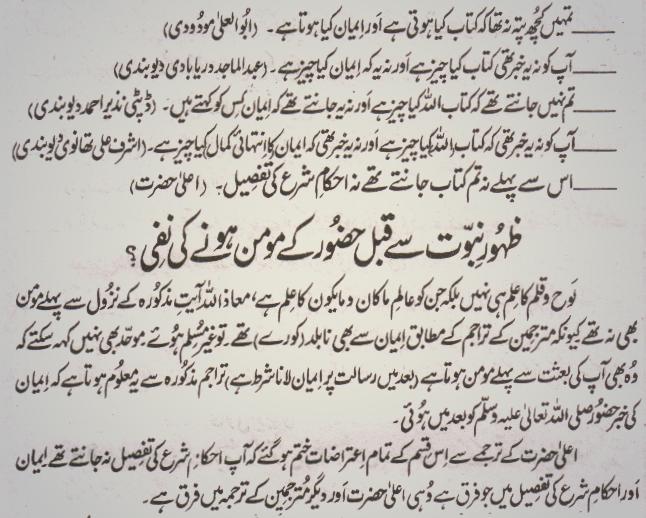 ــــــ تمہیں کچھ پتہ نہ تھا کہ کتاب کیا ہوتی ہے اور ایمان کیا ہوتا ہے۔ (ابوالعلیٰ مودودی)
ــــــ آپ کو نہ یہ خبر تھی کتاب کیا چیز ہے اور نہ یہ کہ ایمان کیا چیز ہے۔ (عبدالماجد دریابادی دیوبندی)
ــــــ تم نہیں جانتے تھے کہ کتاب اللہ کیا چیز ہے اور نہ یہ جانتے تھے کہ ایمان کس کو کہتے ہیں۔ (ڈپٹی نذیر احمد دیوبندی)
ــــــ آپ کو نہ یہ خبر تھی کہ کتاب (اللہ) کیا چیز ہے اور نہ یہ خبر تھی کہ ایمان کا (انتہائی کمال) کیا چیز ہے۔ (اشرف علی تھانوی دیوبندی)
ــــــ اس سے پہلے نہ تم کتاب جانتے تھے نہ احکام شرع کی تفصیل۔ (اعلیٰ حضرت)
ظہورِ نبوّت سے قبل حضور کے مومن ہونے کی نفی؟
لوح و قلم کا علم ہی نہیں بلکہ جن کو عالم ما کان و ما یکون کا علم ہے، معاذ اللہ آیتِ مذکورہ کے نزول سے پہلے مؤمن
بھی نہ تھے کیونکہ مترجمین کے تراجم کے مطابق ایمان سے بھی نابلد (کورے) تھے۔ تو غیر مُسلم ہوئے موحّد بھی نہیں کہہ سکتے کہ
وہ بھی آپ کی بعثت سے پہلے مومن ہوتا ہے (بعد میں رسالت پر ایمان لانا شرط ہے) تراجم مذکورہ سے یہ معلوم ہوتا ہے کہ ایمان
کی خبر حضور صلی اللہ تعالیٰ علیہ وسلّم کو بعد میں ہوئی۔
اعلیٰ حضرت کے ترجمے سے اس قسم کے تمام اعتراضات ختم ہو گئے کہ آپ احکام شرع کی تفصیل نہ جانتے تھے ایمان
اور احکام شرع کی تفصیل میں جو فرق ہے وہی اعلیٰ حضرت اور دیگر مُترجمین کے ترجمہ میں فرق ہے۔